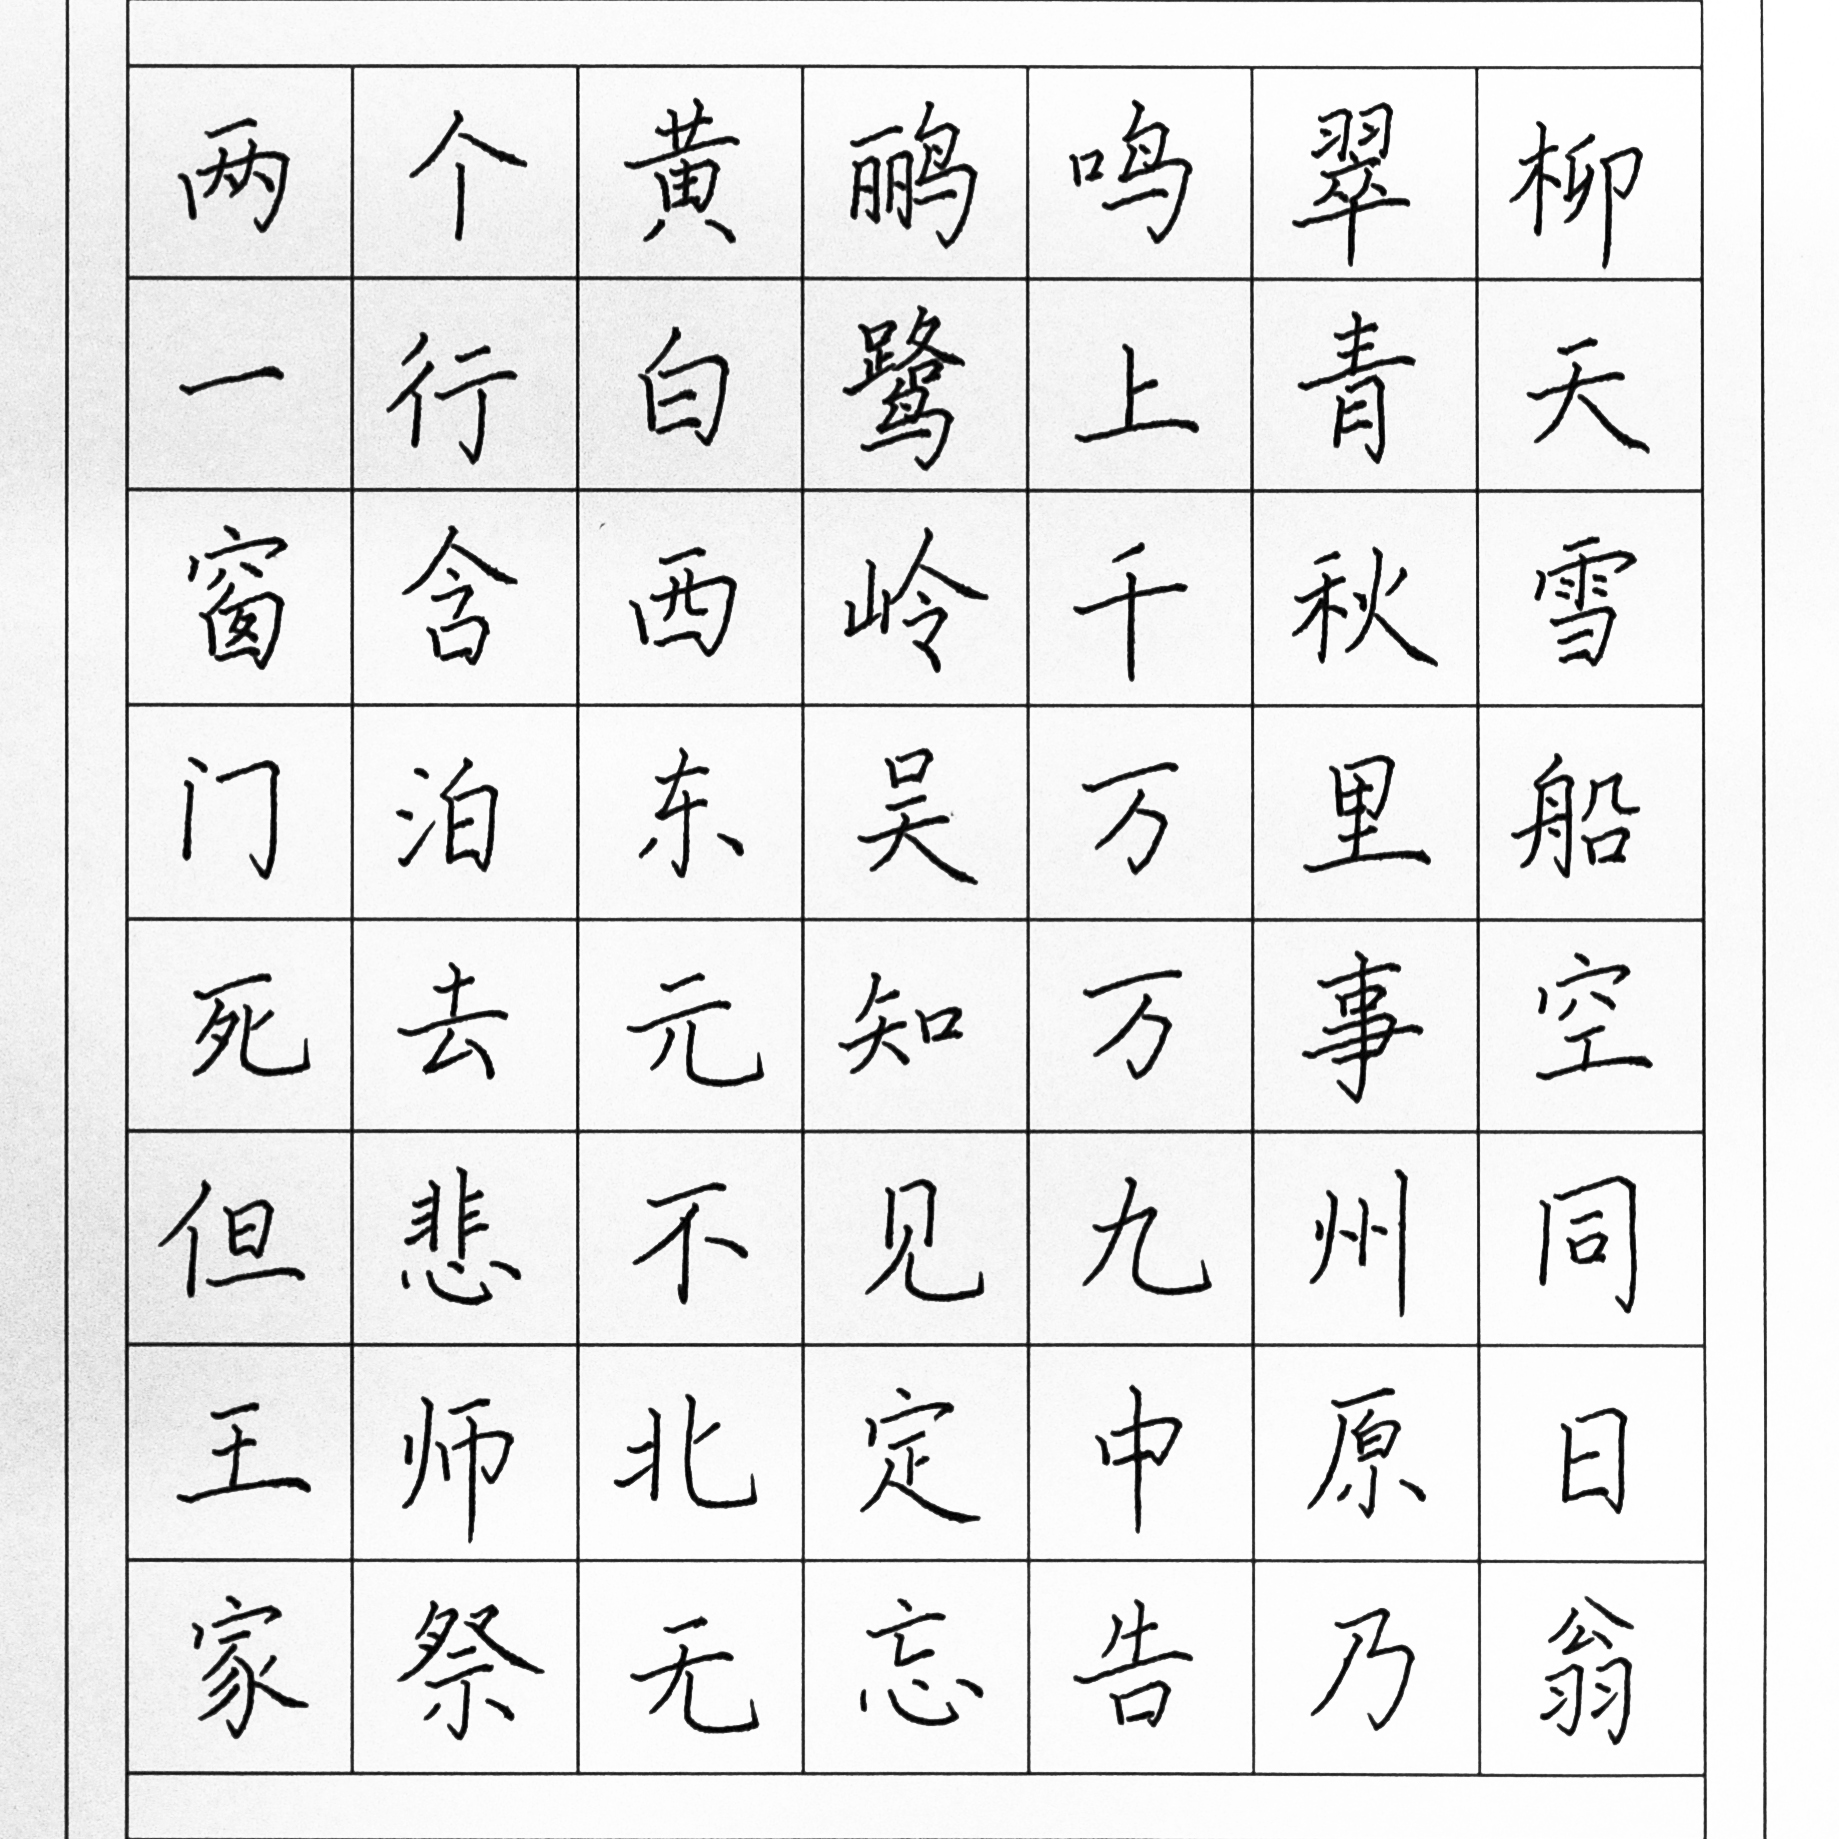 两个黄鹂鸣翠柳
一行白鹭上青天
窗含西岭千秋雪
门泊东吴万里船
死去元知万事空
但悲不见九州同
王师北定中原日
家祭无忘告乃翁